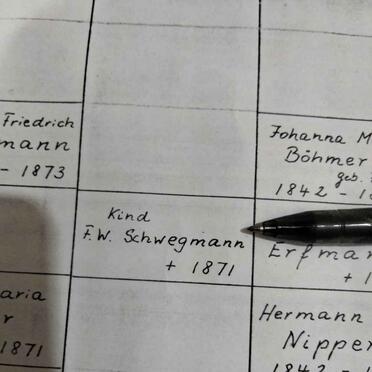 Friedrich
mann
- 1873
Johanna M
Böhmer
geb.
1842 - 18
Kind
F.W. Schwegmann
+ 1871
Erfman
+ 1
aria
r
1871
Hermann
Nipper
1842 - 1